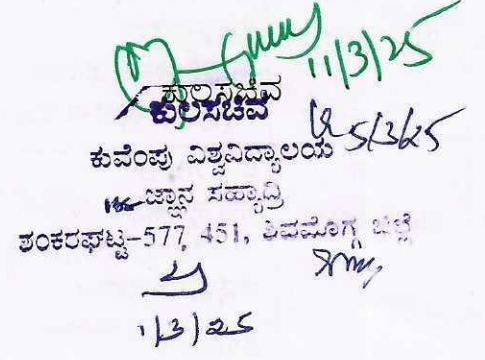 11/3/25
ಕುಲಸಚಿವ
ಕುಲಸಚಿವ
5/3/25
ಕುವೆಂಪು ವಿಶ್ವವಿದ್ಯಾಲಯ
ಜ್ಞಾನ ಸಹ್ಯಾದ್ರಿ
ಶಂಕರಘಟ್ಟ-577 451, ಶಿವಮೊಗ್ಗ ಜಿಲ್ಲೆ
1/3/25